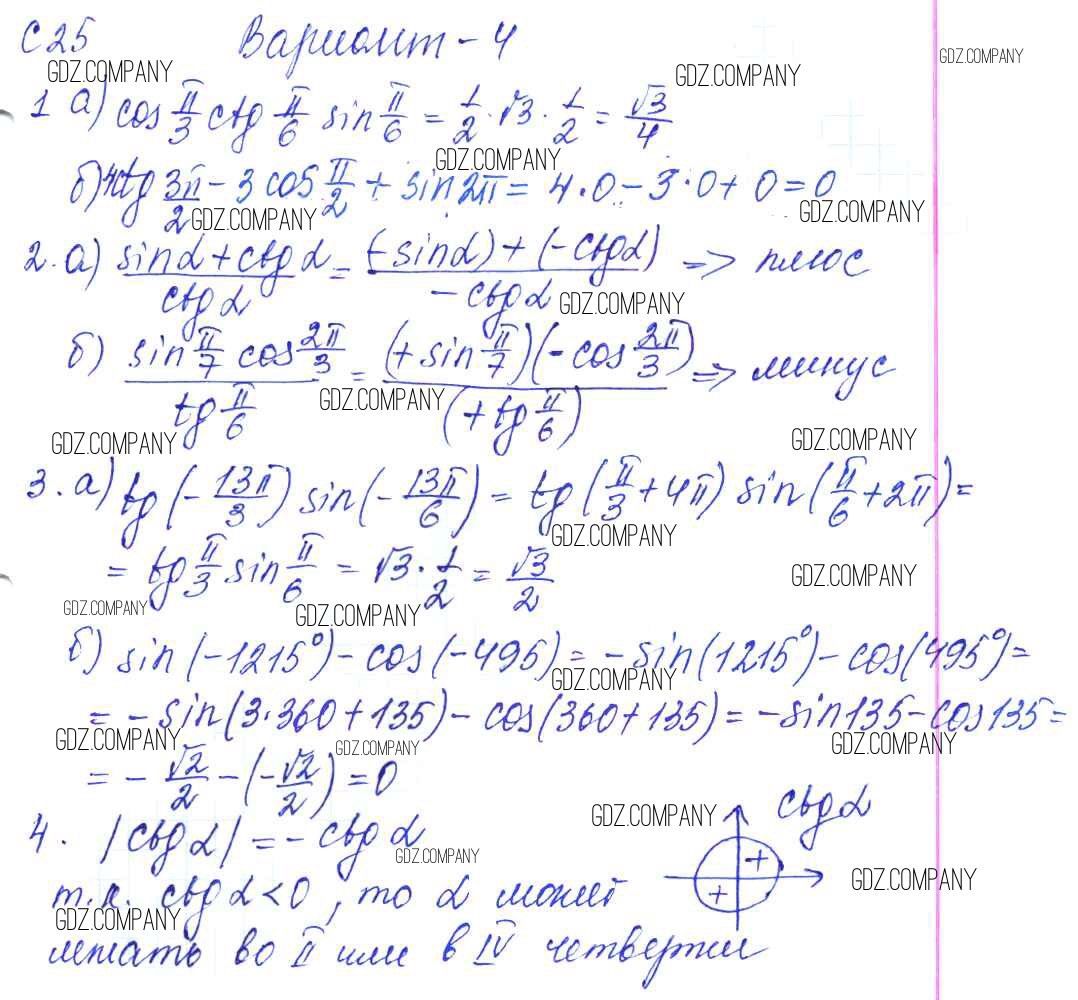 С 25 Вариант - 4
GDZ.COMPANY GDZ.COMPANY GDZ.COMPANY
1 а) cos π/3 ctg π/6 sin π/6 = 1/2 · √3 · 1/2 = √3/4
GDZ.COMPANY
б) 4ctg 3π/2 - 3 cos π/2 + sin 2π = 4 · 0 - 3 · 0 + 0 = 0
GDZ.COMPANY GDZ.COMPANY
2. а) (sin α + ctg α)/(ctg α) = ((-sin α) + (-ctg α))/(-ctg α) => плюс
GDZ.COMPANY
б) (sin π/7 cos 2π/3)/(tg π/6) = ((+ sin π/7)(- cos 2π/3))/((+ tg π/6)) => минус
GDZ.COMPANY
GDZ.COMPANY GDZ.COMPANY
3. а) tg (- 13π/3) sin (- 13π/6) = tg (π/3 + 4π) sin (π/6 + 2π) =
GDZ.COMPANY
= tg π/3 sin π/6 = √3 · 1/2 = √3/2
GDZ.COMPANY
GDZ.COMPANY GDZ.COMPANY
б) sin (-1215°) - cos (-495) = - sin (1215°) - cos (495°) =
GDZ.COMPANY
= - sin (3·360 + 135) - cos (360 + 135) = - sin 135 - cos 135 =
GDZ.COMPANY GDZ.COMPANY GDZ.COMPANY
= - √2/2 - (- √2/2) = 0
GDZ.COMPANY ctg α
4. |ctg α| = - ctg α
+
+
GDZ.COMPANY GDZ.COMPANY
т.к. ctg α < 0, то α может
GDZ.COMPANY
лежать во II или в IV четверти